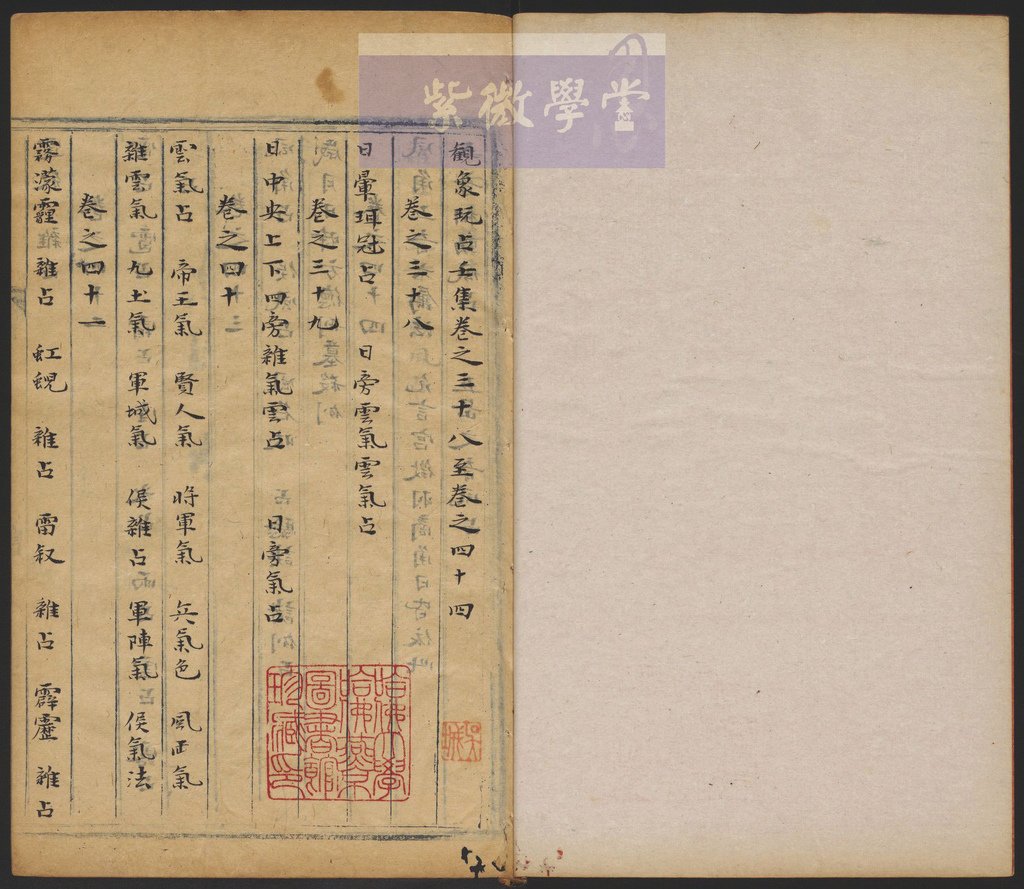 紫微學堂
觀象玩占壬集卷之三十八至卷之四十四
卷之三十八
日暈珥冠占 日旁雲氣雲氣占
卷之三十九
日中央上下四旁雜氣雲占 日旁氣占
卷之四十
雲氣占 帝王氣 賢人氣 將軍氣 兵氣色 風雨氣
雜雲氣九土氣 軍城氣 侯雜占 軍陣氣 侯氣法
卷之四十一
霧濛霾雜占 虹蜺 雜占 雷叙 雜占 霹靂 雜占
哈佛大學
哈佛燕京
圖書館
珍藏印